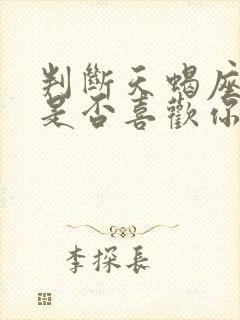 判斷天蠍座
是否喜歡你
李探長